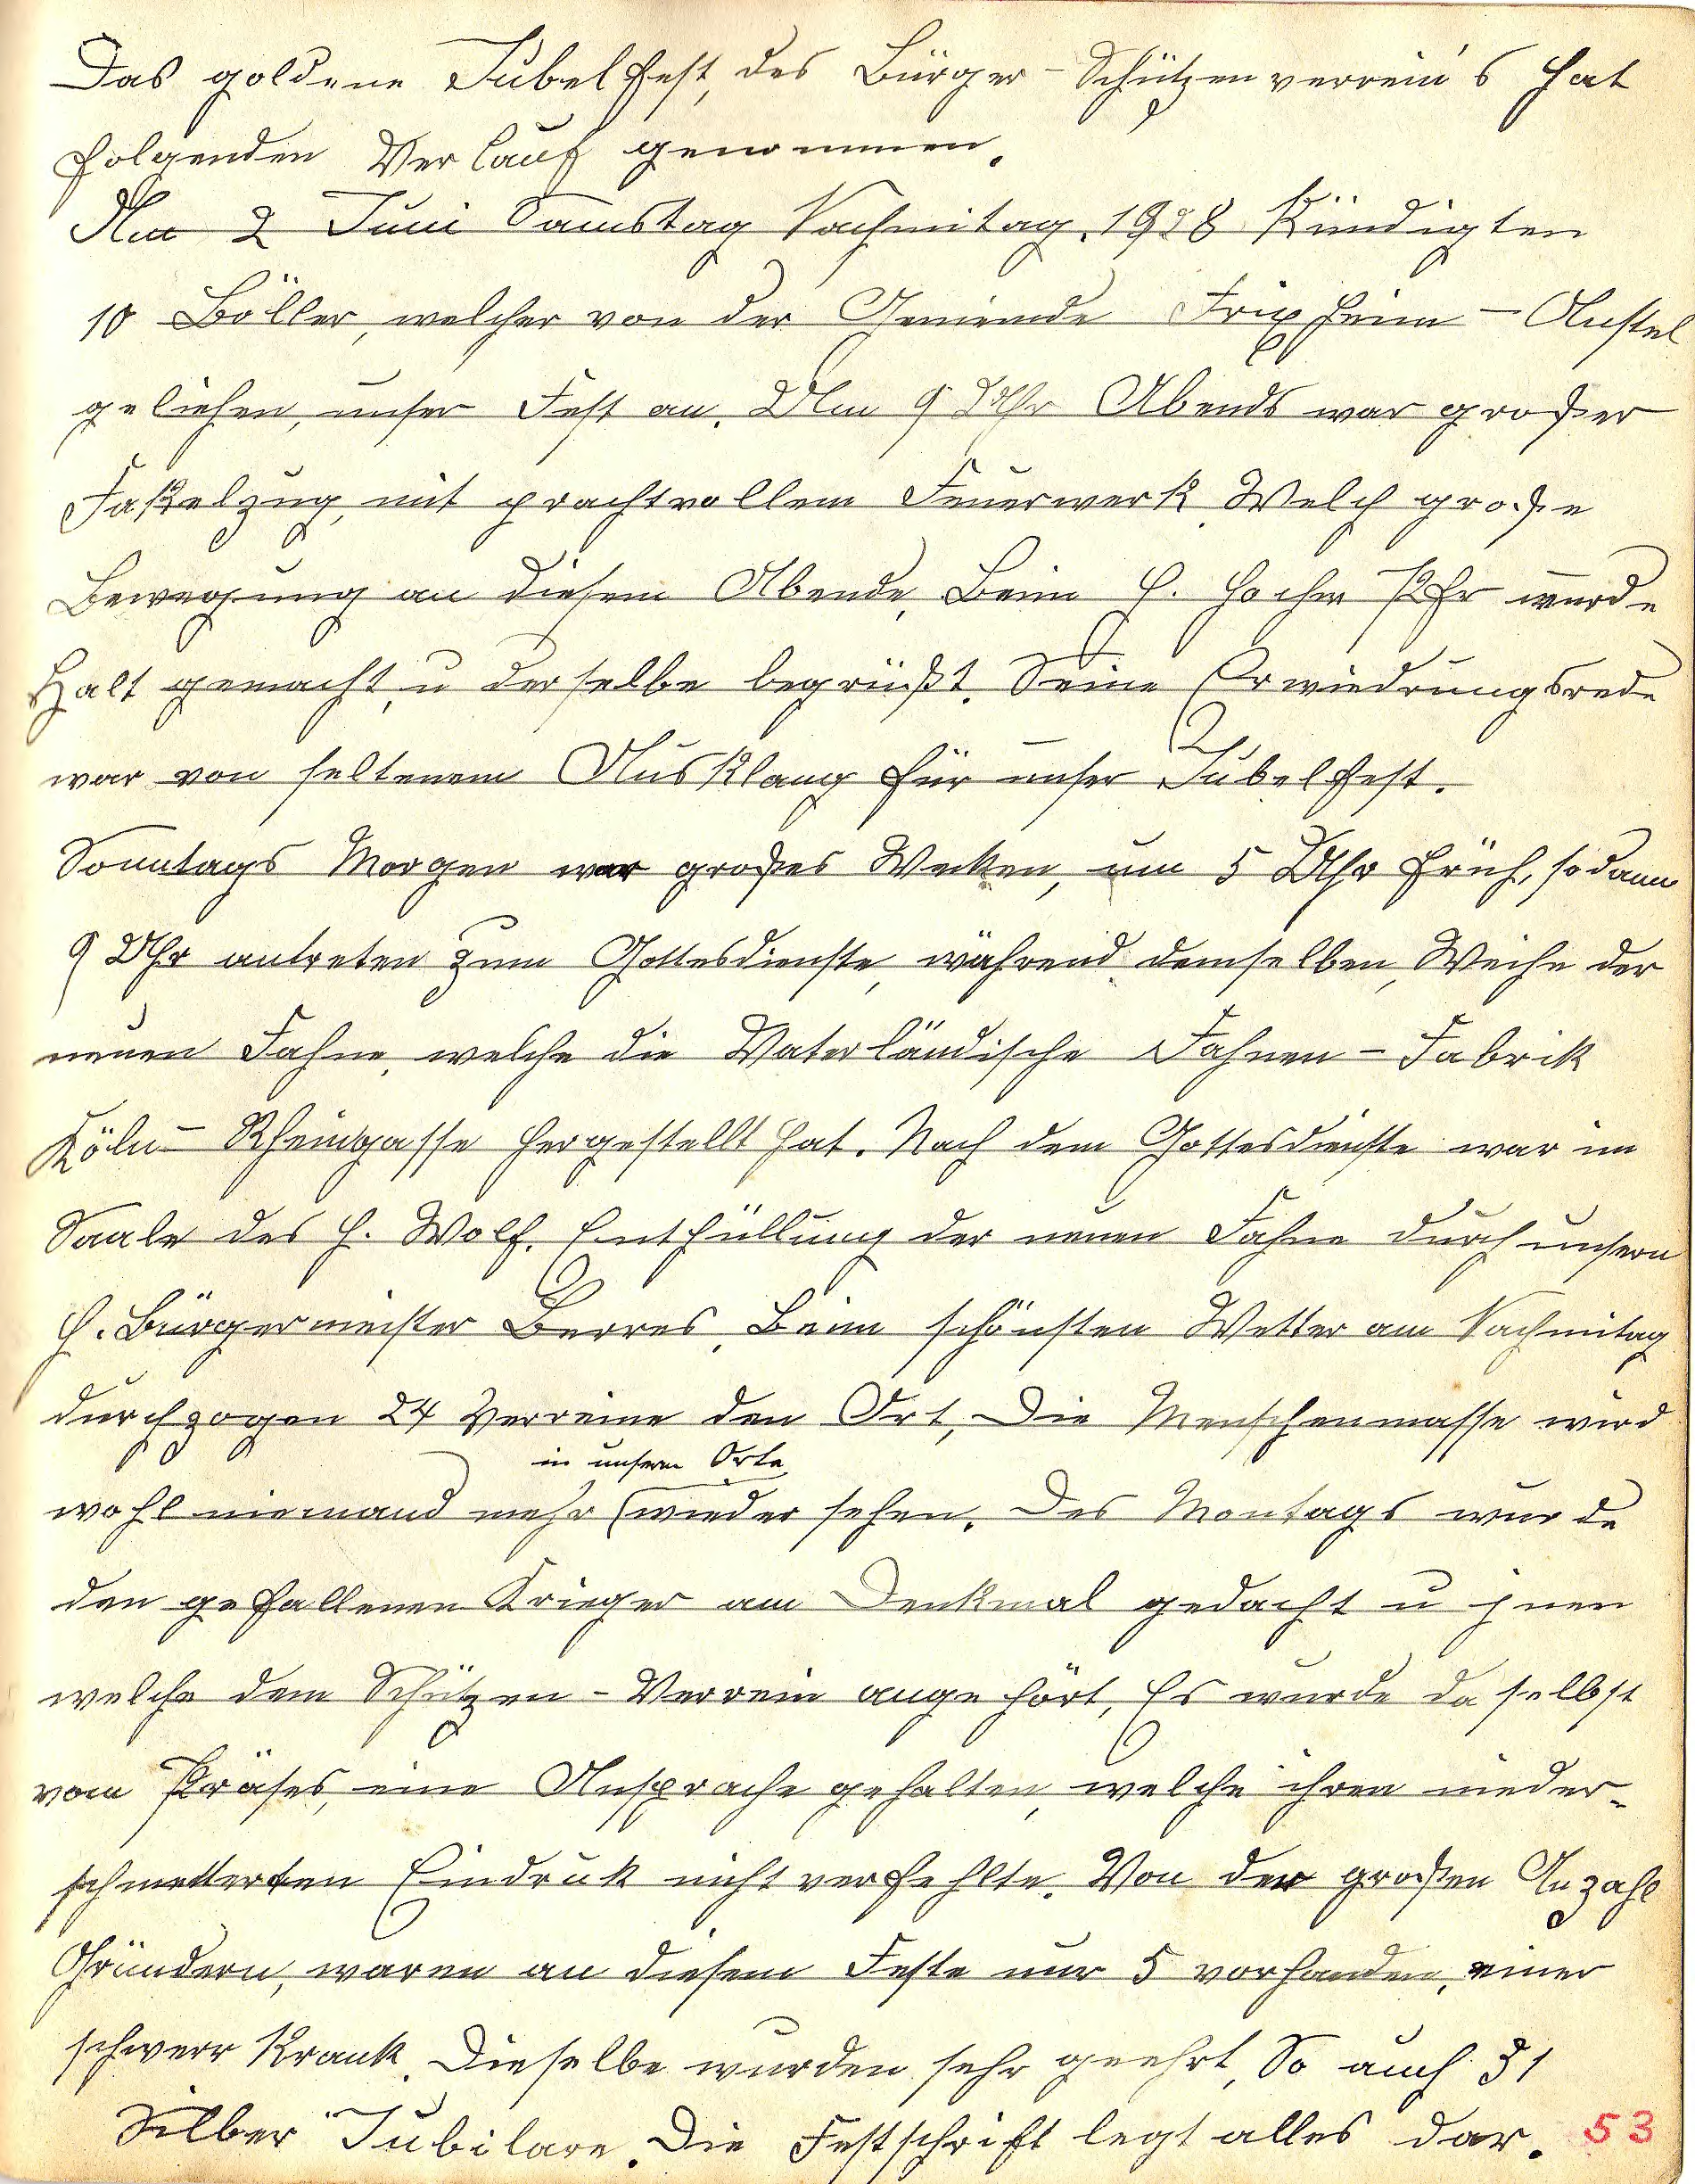 Das goldene Jubelfest, des Bürger-Schützenverrein's hat
folgenden Verlauf genommen.
Am 2 Juni Samstag Nachmitag, 1928 Kündigten
10 Böller, welcher von der Gemeinde Frixheim-Anstel
geliehen, unser Fest an. Um 9 Uhr Abends war großer
Fakelzug, mit prachtvollem Feuerwerk. Welch große
Bewegung an diesem Abende. Beim H. Hochw Pfr wurde
Halt gemacht, u derselbe begrüßt. Seine Erwiedrungsrede
war von seltenem Ausklang für unser Jubelfest.
Sonntags Morgen war großes Wecken, um 5 Uhr früh, sodann
9 Uhr antreten zum Gottesdienste, während demselben, Weihe der
neuen Fahne, welche die Vaterländische Fahnen-Fabrik
Köln-Rheingasse hergestellt hat. Nach dem Gottesdienste war im
Saale des H. Wolf. Enthüllung der neuen Fahne durch unsern
H. Bürgermeister Berres. Beim schönsten Wetter am Nachmitag
durchzogen 24 Verreine den Ort, Die Menschenmasse wird
in unserm Orte
wohl niemand mehr (wieder sehen. Des Montags wurde
den gefallenen Krieger am Denkmal gedacht u jnen
welche dem Schützen-Verrein angehört, Es wurde daselbst
vom Präses, eine Ansprache gehalten, welche ihren nieder-
schmetterten Eindruk nicht verfehlte. Von der großen Anzahl
Gründern, waren an diesem Feste nur 5 vorhanden, einer
schwerr Krank. Dieselbe wurden sehr geehrt, So auch 31
Silber Jubilare. Die Festschrift legt alles dar. 53